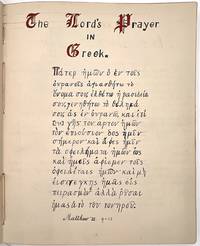 The Lord's Prayer
IN
Greek.
Πάτερ ἡμῶν ὁ ἐν τοῖς
οὐρανοῖς ἁγιασθήτω τὸ
ὄνομα σου ἐλθέτω ἡ βασιλεία
σου γενηθήτω τὸ θέλημά
σου ὡς ἐν οὐρανῷ καὶ ἐπὶ
γῆς τον αρτον ἡμῶν
τὸν ἐπιούσιον δὸς ἡμῖν
σήμερον καὶ ἄφες ἡμῖν
τὰ ὀφειλήματα ἡμῶν ὡς
καὶ ἡμεῖς ἀφίεμεν τοῖς
ὀφειλέταις ἡμῶν καὶ μὴ
εἰσενέγκης ἡμᾶς εἰς
πειρασμόν ἀλλὰ ῥῦσαι
ἡμᾶς ἀπὸ τοῦ πονηροῦ.
Matthew 9-13